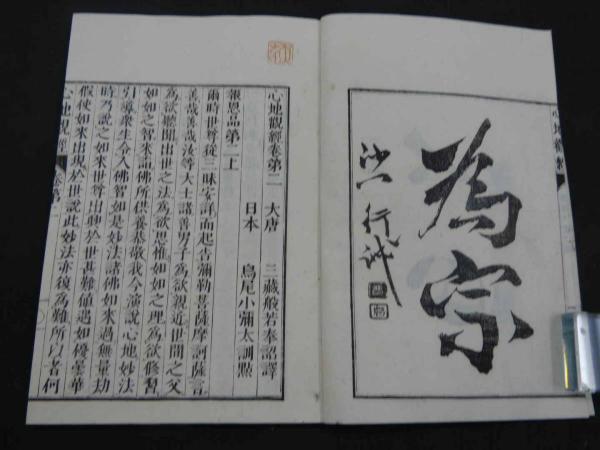 為宗
沙門行誡
心地觀經卷第二　大唐　三藏般若奉詔譯
日本　鳥尾小彌太訓點
報恩品第二上
爾時世尊從三昧安詳而起告彌勒菩薩摩訶薩言
善哉善哉汝等大士諸善男子為欲親近世間之父
為欲聽聞出世之法為欲思惟如如之理為欲修習
如如之智來詣佛所供養恭敬我今演說心地妙法
引導衆生令入佛智如是妙法諸佛如來過無量劫
時乃說之如來世尊出興於世甚難値遇如優曇華
假使如來出現於世說此妙法亦復為難所以者何
心地觀經